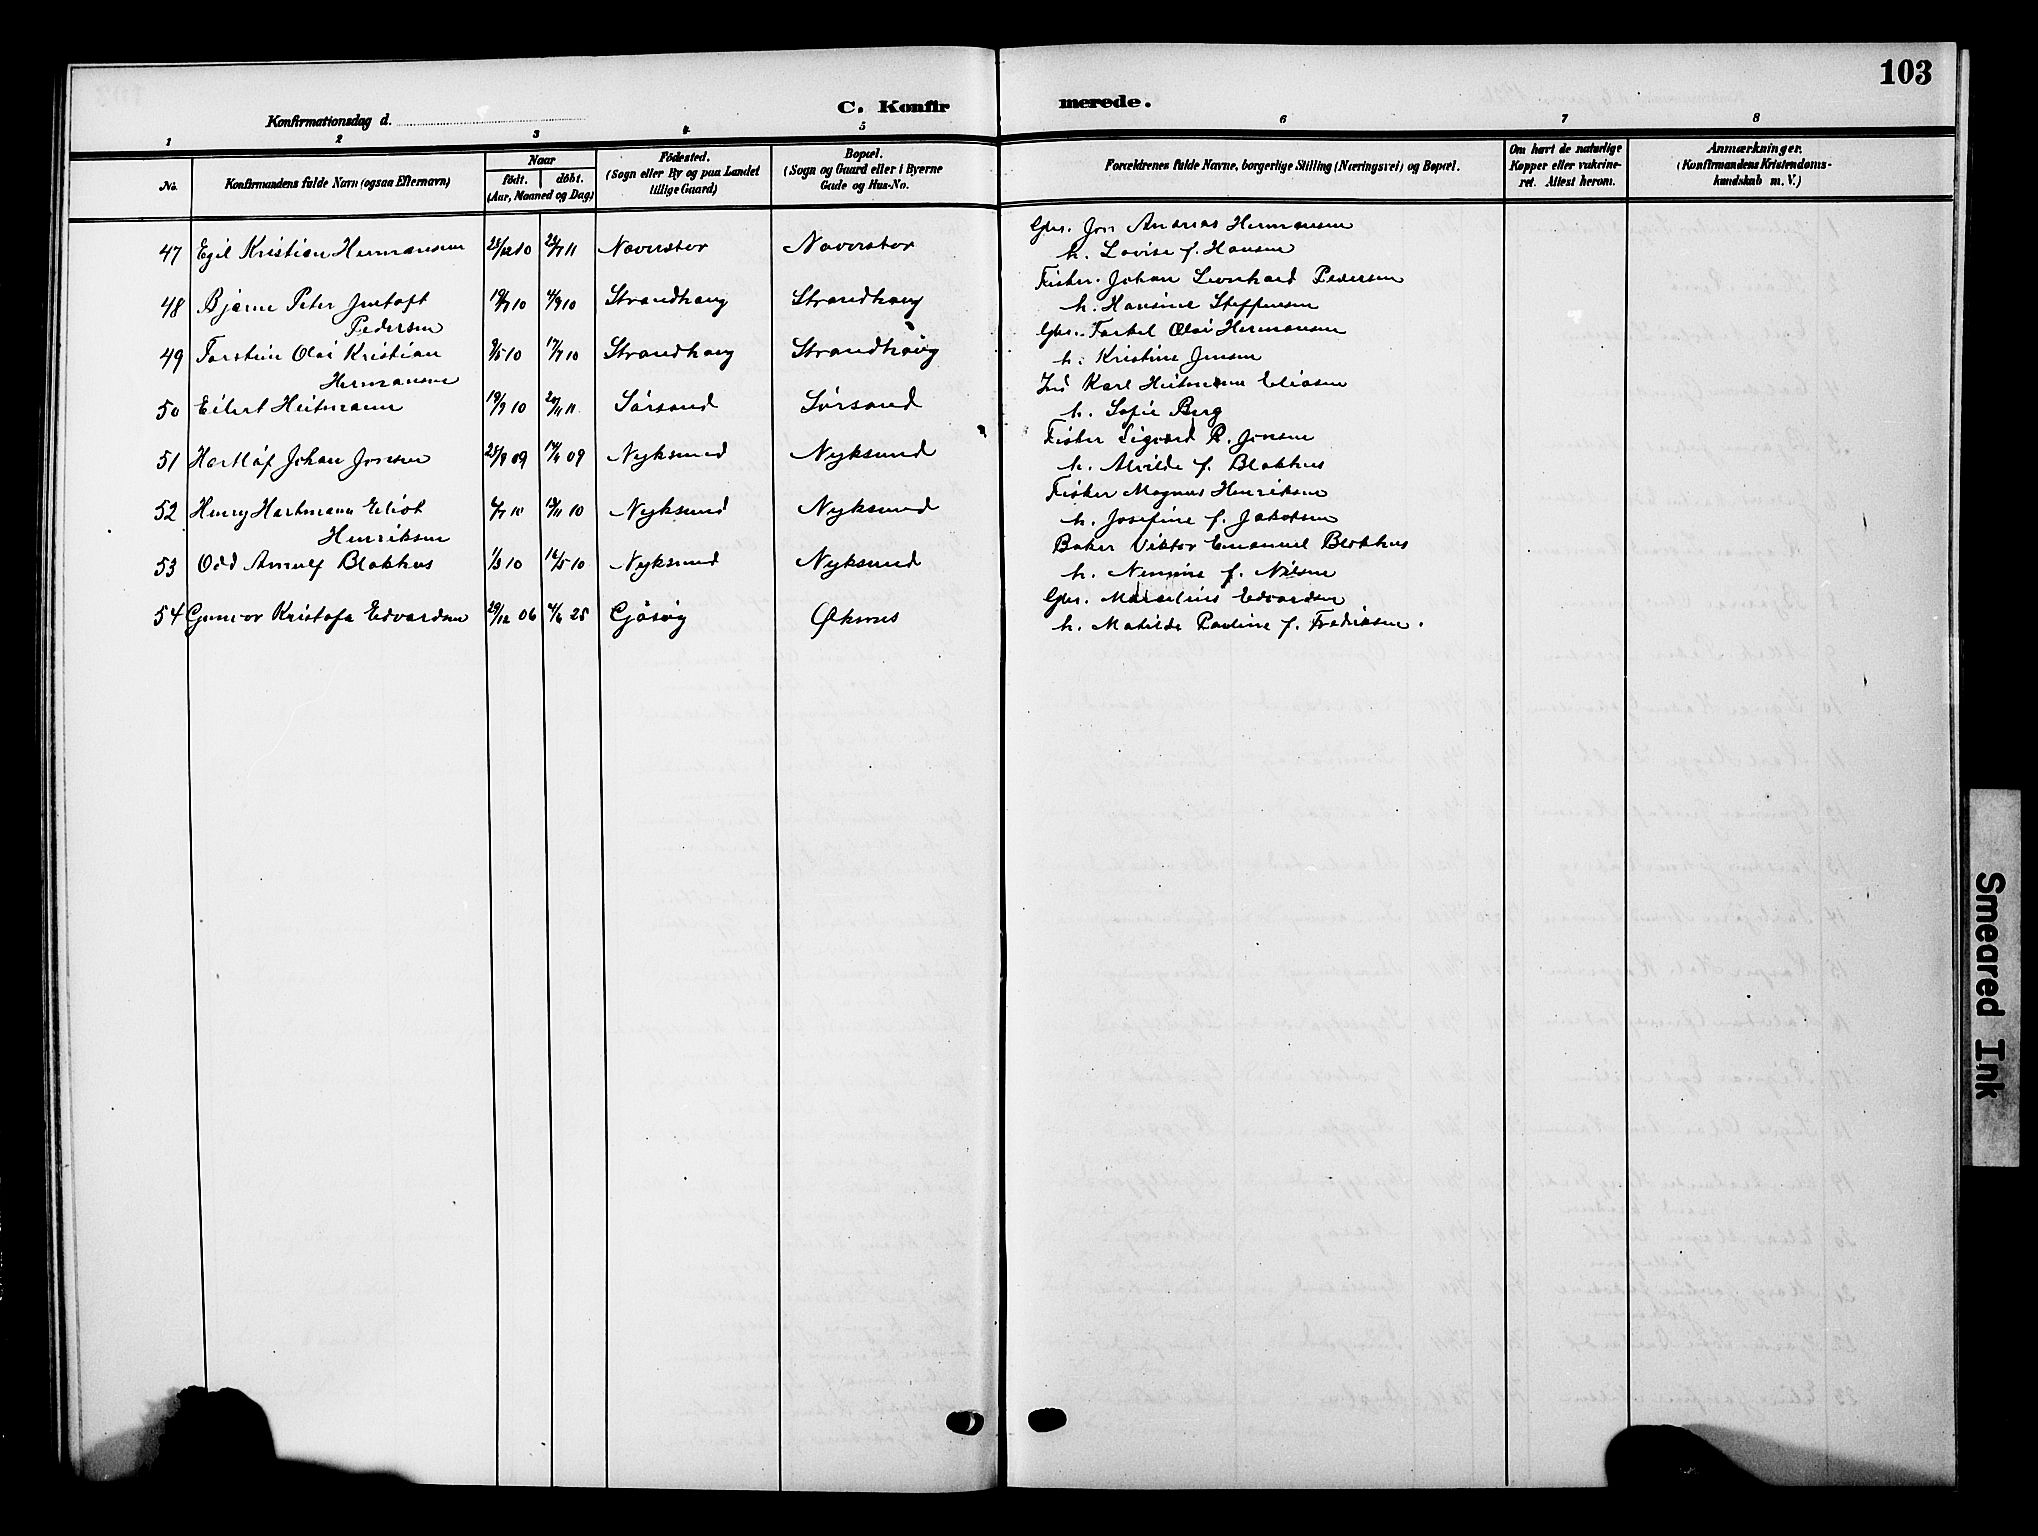 103
C. Konfirmerede.
Konfirmationsdag d.
1 2 3 4 5 6 7 8
No.
Konfirmandens fulde Navn (ogsaa Efternavn)
Naar
født. døbt.
(Aar, Maaned og Dag)
Fødested.
(Sogn eller By og paa Landet
tillige Gaard)
Bopæl.
(Sogn og Gaard eller i Byerne
Gade og Hus-No.
Forældrenes fulde Navne, borgerlige Stilling (Næringsvei) og Bopæl.
Om havt de naturlige
Kopper eller vakcine-
ret. Attest herom.
Anmærkninger.
(Konfirmandens Kristendoms-
kundskab m. V.)
47 Egil Kristian Hermansen 28/12 10 Naverstor Naverstor Gbr. Jon Andreas Hermansen
h. Lovise f. Hansen
48 Bjarne Peter Justoft 4/9 10 Strandhaug Strandhaug Fisker Johan Leonhard Pedersen
Pedersen h. Hansine Steffensen
49 Torstein Olai Kristian 17/7 10 Strandhaug Strandhaug Gbr. Torkel Olai Hermansen
Hermansen h. Kristine Jensen
50 Eilert Heitmann 19/9 10 Sørsand Sørsand Karl Heitmann Eliasen
h. Sofie Berg
51 Hartløf Johan Jensen 09 09 Nyksund Nyksund Fisker Sigvard P. Jensen
h. Alvilde f. Blokhus
52 Henry Hartmann Eliot 10 Nyksund Nyksund Fisker Magnus Henriksen
Henriksen h. Josefine f. Jakobsen
53 Odd Arnulf Blokhus 1/3 10 16/5 10 Nyksund Nyksund Baker Viktor Emanuel Blokhus
h. Nensine f. Nilsen
54 Gunvor Kristofa Edvardsen 29/12 06 4/6 25 Gjøsvig Øksnes Gbr. Marselius Edvardsen
h. Matilde Pauline f. Fredriksen.
Smeared Ink